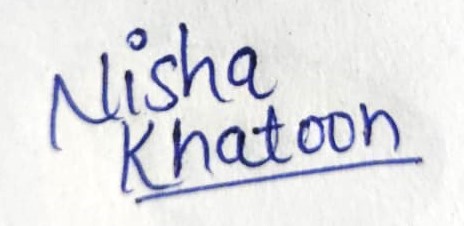 Nisha
Khatoon